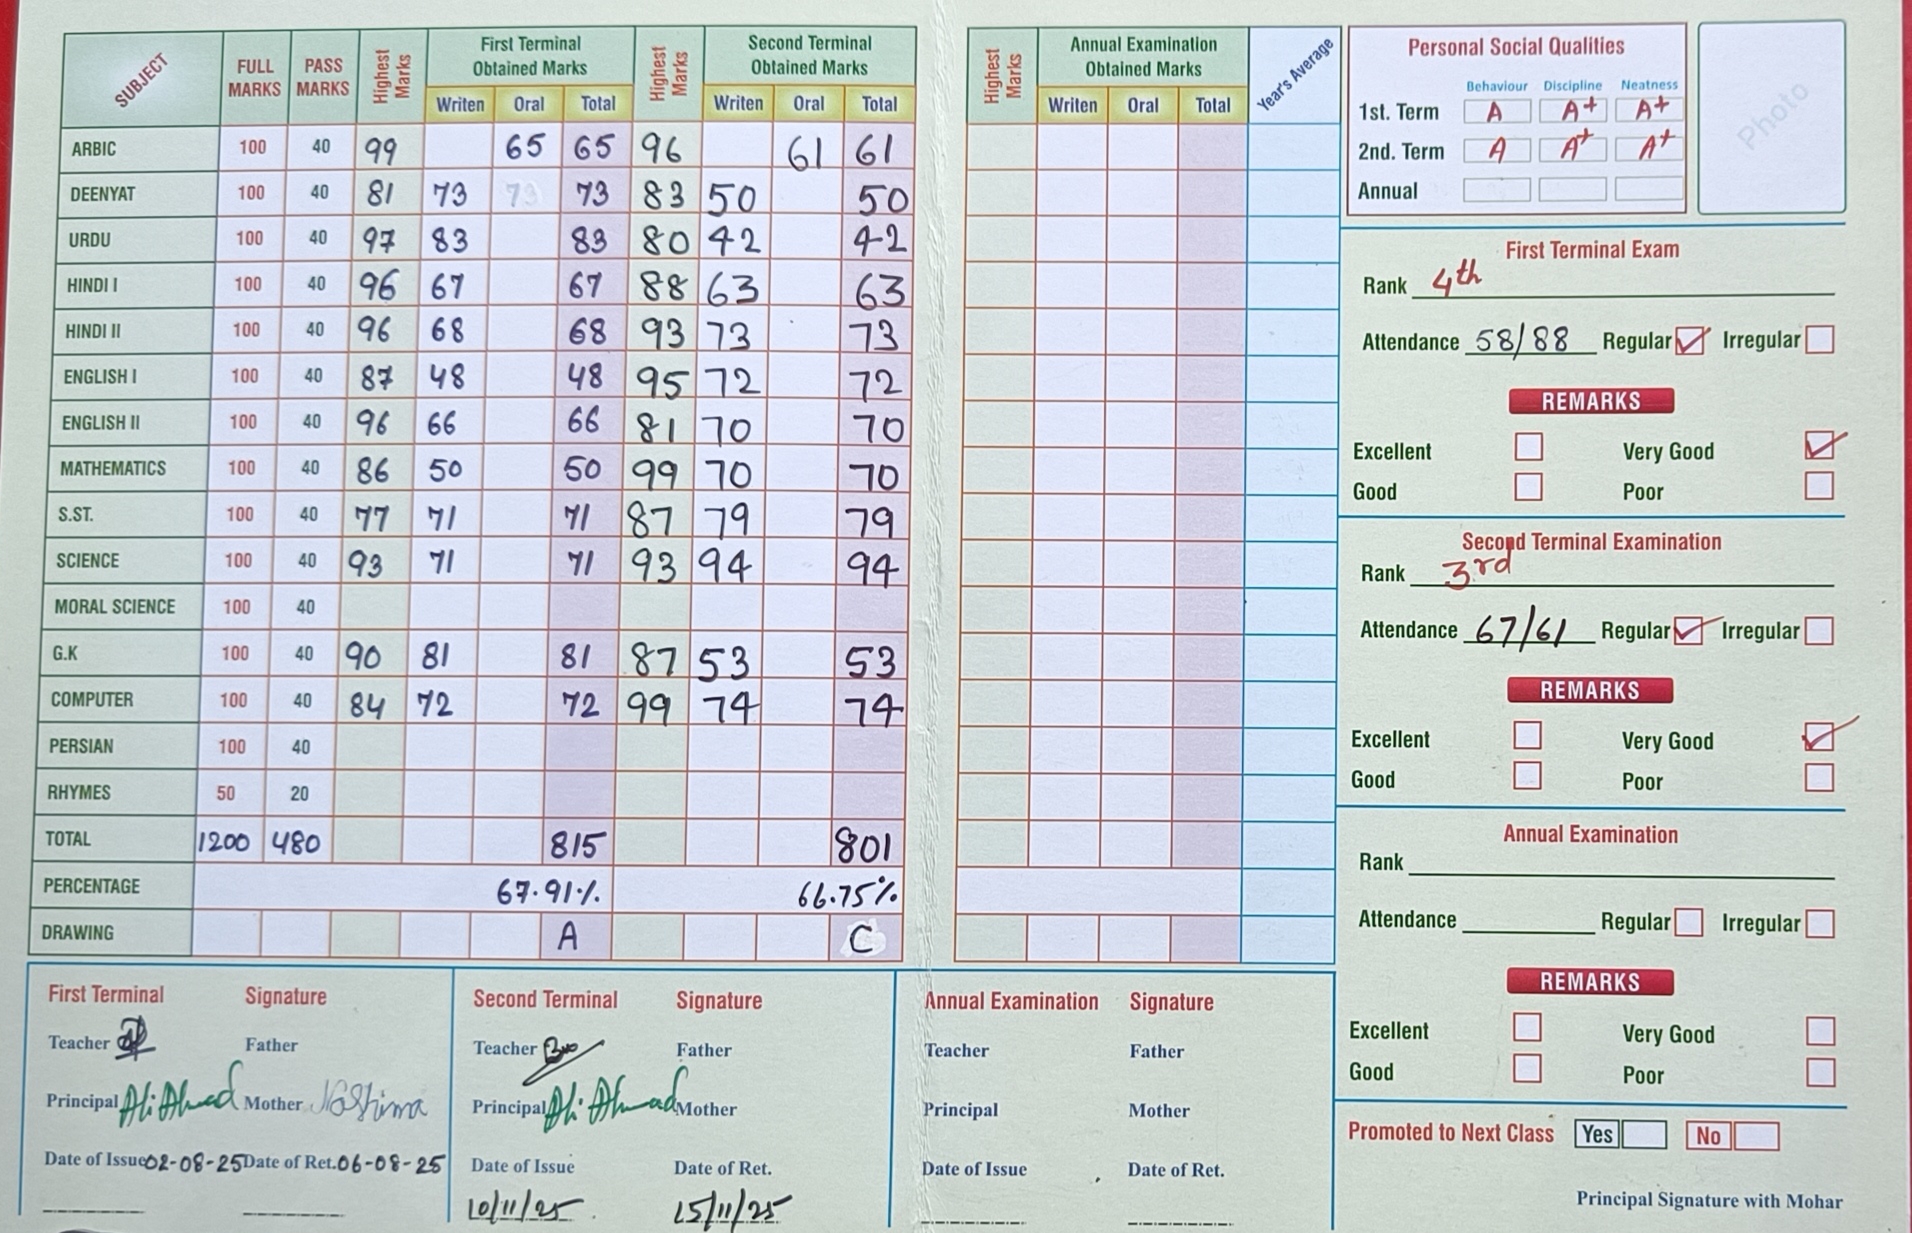 SUBJECT FULL MARKS PASS MARKS Highest Marks First Terminal Obtained Marks Highest Marks Second Terminal Obtained Marks
Writen Oral Total Writen Oral Total
ARBIC 100 40 99 65 65 96 61 61
DEENYAT 100 40 81 73 73 73 83 50 50
URDU 100 40 97 83 83 80 42 42
HINDI I 100 40 96 67 67 88 63 63
HINDI II 100 40 96 68 68 93 73 73
ENGLISH I 100 40 87 48 48 95 72 72
ENGLISH II 100 40 96 66 66 81 70 70
MATHEMATICS 100 40 86 50 50 99 70 70
S.ST. 100 40 77 71 71 87 79 79
SCIENCE 100 40 93 71 71 93 94 94
MORAL SCIENCE 100 40
G.K 100 40 90 81 81 87 53 53
COMPUTER 100 40 84 72 72 99 74 74
PERSIAN 100 40
RHYMES 50 20
TOTAL 1200 480 815 801
PERCENTAGE 67.91% 66.75%
DRAWING A C
Highest Marks Annual Examination Obtained Marks Year's Average
Writen Oral Total
Personal Social Qualities
Behaviour Discipline Neatness
1st. Term A A+ A+
2nd. Term A A+ A+
Annual
Photo
First Terminal Exam
Rank 4th
Attendance 58/88 Regular Irregular
REMARKS
Excellent Very Good
Good Poor
Second Terminal Examination
Rank 3rd
Attendance 67/61 Regular Irregular
REMARKS
Excellent Very Good
Good Poor
Annual Examination
Rank
Attendance Regular Irregular
REMARKS
Excellent Very Good
Good Poor
Promoted to Next Class Yes No
Principal Signature with Mohar
First Terminal Signature
Teacher Father
Principal Ali Ahmad Mother Nashima
Date of Issue 02-08-25 Date of Ret. 06-08-25
Second Terminal Signature
Teacher Father
Principal Ali Ahmad Mother
Date of Issue Date of Ret.
10/11/25 15/11/25
Annual Examination Signature
Teacher Father
Principal Mother
Date of Issue Date of Ret.